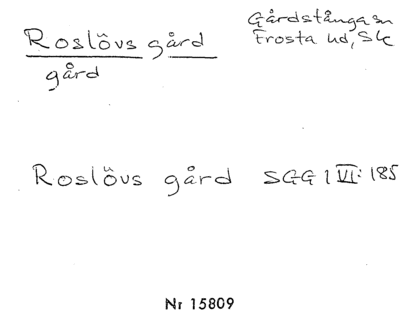 Roslövs gård
gård
Gårdstånga sn
Frosta hd, Sk
Roslövs gård SGG 1 VI: 185
Nr 15809